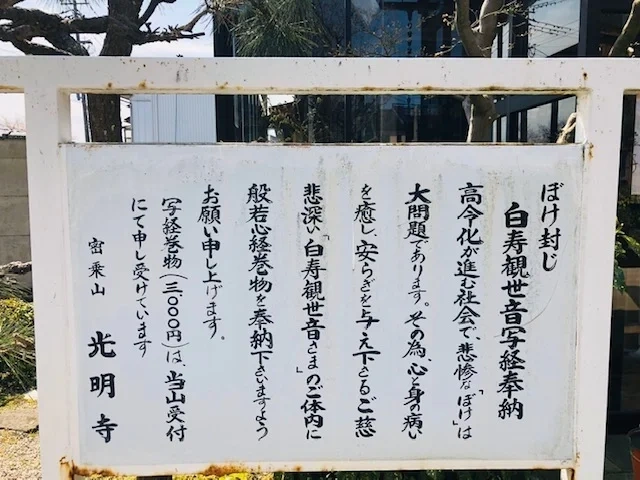 ぼけ封じ
白寿観世音写経奉納
高令化が進む社会で、悲惨な「ぼけ」は
大問題であります。その為、心と身の病い
を癒し、安らぎを与え下さるご慈
悲深い「白寿観世音さま」のご体内に
般若心経巻物を奉納下さいますよう
お願い申し上げます。
写経巻物(三、〇〇〇円)は、当山受付
にて申し受けています
密乗山 光明寺